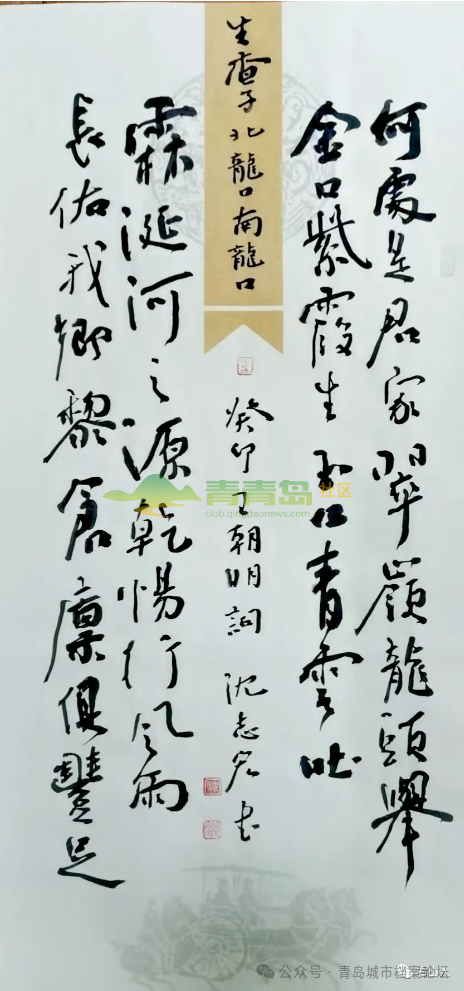 何處是君家翠嶺龍頭舉
金口紫霞生玉口青雲吐
生查子北龍口南龍口
癸卯丁朝明詞 沈志書
霖涎河之源乾惕行風雨
長佑我鄉黎倉廩俱豐足
青青岛社区
club.qingdaonews.com
公众号·青岛城市档案论坛